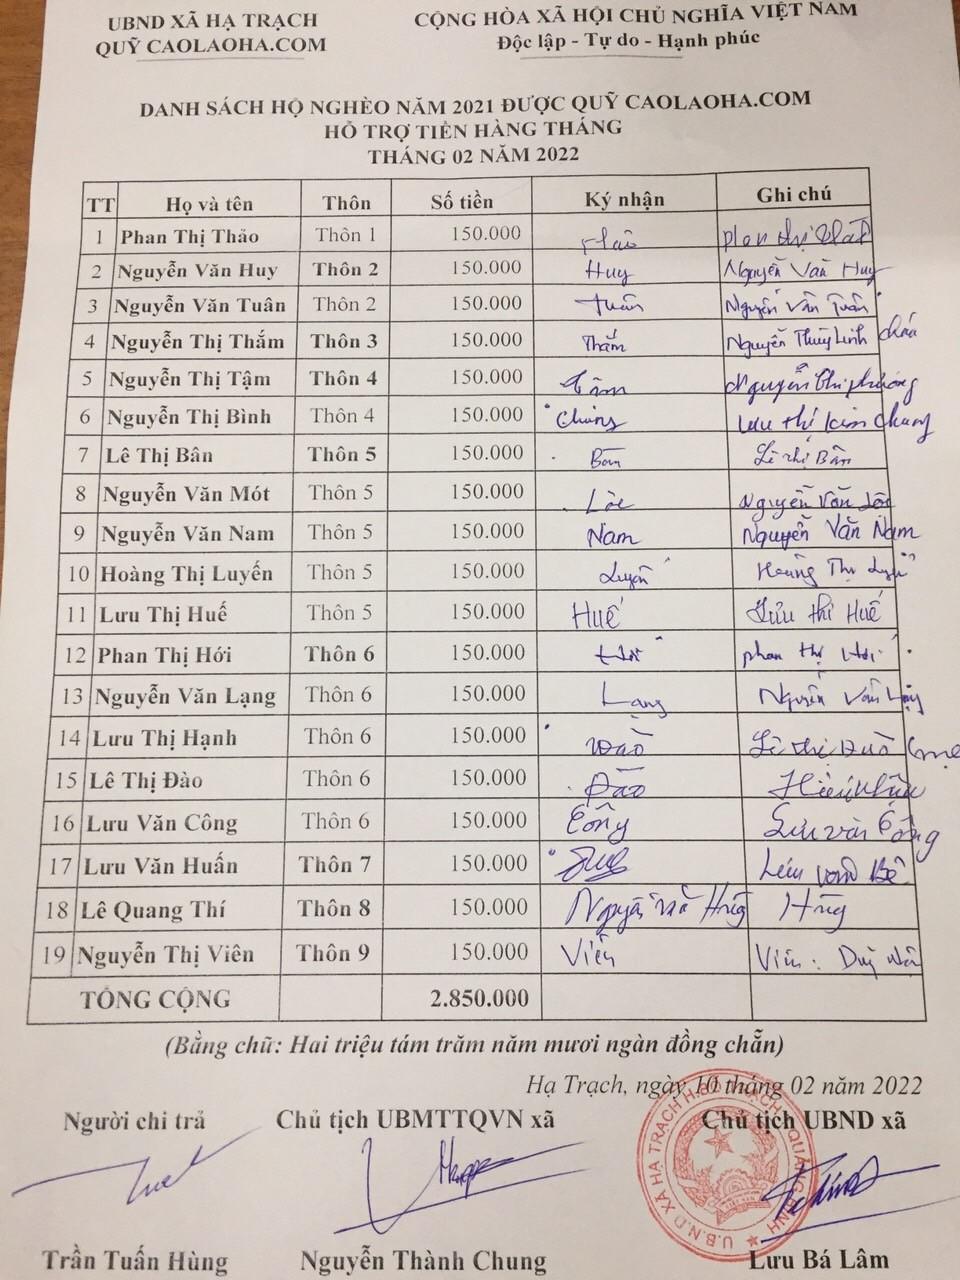 UBND XÃ HẠ TRẠCH
QUỸ CAOLAOHA.COM
CỘNG HÒA XÃ HỘI CHỦ NGHĨA VIỆT NAM
Độc lập - Tự do - Hạnh phúc
DANH SÁCH HỘ NGHÈO NĂM 2021 ĐƯỢC QUỸ CAOLAOHA.COM
HỖ TRỢ TIỀN HÀNG THÁNG
THÁNG 02 NĂM 2022
TT Họ và tên Thôn Số tiền Ký nhận Ghi chú
1 Phan Thị Thảo Thôn 1 150.000
2 Nguyễn Văn Huy Thôn 2 150.000 Huy Nguyễn Văn Huy
3 Nguyễn Văn Tuân Thôn 2 150.000 Tuấn Nguyễn Văn Tuấn
4 Nguyễn Thị Thắm Thôn 3 150.000 Thắm Nguyễn Thùy Linh cháu
5 Nguyễn Thị Tậm Thôn 4 150.000 Nguyễn Thị phương
6 Nguyễn Thị Bình Thôn 4 150.000 Chung Lưu thị kim chung
7 Lê Thị Bân Thôn 5 150.000 Bân Lê thị Bân
8 Nguyễn Văn Mót Thôn 5 150.000 Nguyễn Văn
9 Nguyễn Văn Nam Thôn 5 150.000 Nam Nguyễn Văn Nam
10 Hoàng Thị Luyến Thôn 5 150.000 Luyến Hoàng Thị Luyến
11 Lưu Thị Huế Thôn 5 150.000 Huế Lưu thị Huế
12 Phan Thị Hới Thôn 6 150.000 Hới phan thị Hới
13 Nguyễn Văn Lạng Thôn 6 150.000 Lạng Nguyễn Văn Lạng
14 Lưu Thị Hạnh Thôn 6 150.000 Lê thị
15 Lê Thị Đào Thôn 6 150.000 Đào
16 Lưu Văn Công Thôn 6 150.000 Công Lưu văn Công
17 Lưu Văn Huấn Thôn 7 150.000
18 Lê Quang Thí Thôn 8 150.000 Nguyễn Văn Hùng Hùng
19 Nguyễn Thị Viên Thôn 9 150.000 Viên Viên
TỔNG CỘNG 2.850.000
(Bằng chữ: Hai triệu tám trăm năm mươi ngàn đồng chẵn)
Hạ Trạch, ngày 10 tháng 02 năm 2022
Người chi trả Chủ tịch UBMTTQVN xã Chủ tịch UBND xã
U.B.N.D XÃ HẠ TRẠCH H.BỐ TRẠCH T.QUẢNG BÌNH
Trần Tuấn Hùng Nguyễn Thành Chung Lưu Bá Lâm